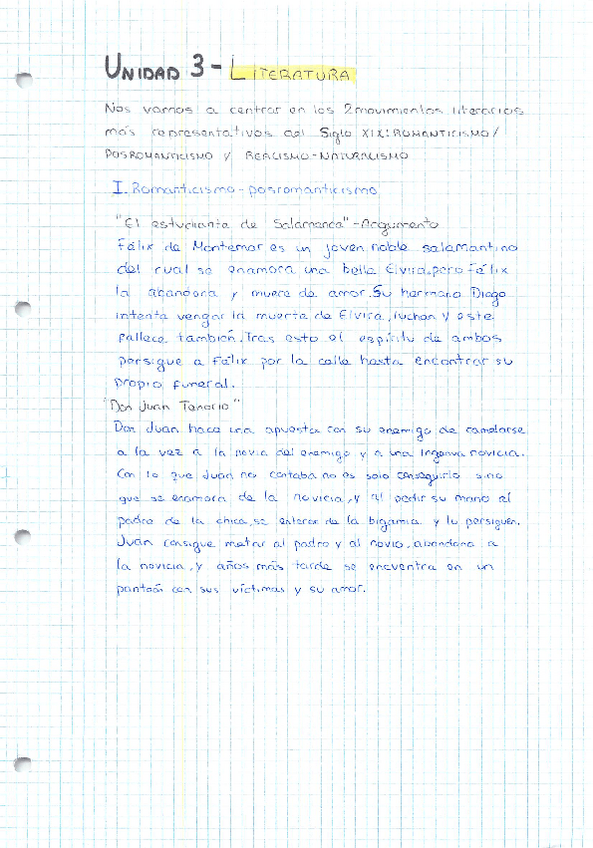 UNIDAD 3 - LITERATURA
Nos vamos a centrar en los 2 movimientos literarios
más representativos del Siglo XIX: ROMANTICISMO/
POSROMANTICISMO y REALISMO-NATURALISMO
I. Romanticismo - posromanticismo
"El estudiante de Salamanca" - Argumento
Félix de Montemar es un joven noble salmantino
del cual se enamora una bella Elvira, pero Félix
la abandona y muere de amor. Su hermano Diego
intenta vengar la muerte de Elvira, luchan y este
fallece también. Tras esto el espíritu de ambos
persigue a Félix por la calle hasta encontrar su
propio funeral.
"Don Juan Tenorio"
Don Juan hace una apuesta con su enemigo de camelarse
a la vez a la novia del enemigo y a una ingenua novicia.
Con lo que Juan no contaba no es solo conseguirlo sino
que se enamora de la novicia, y al pedir su mano al
padre de la chica, se enteran de la bigamia y lo persiguen.
Juan consigue matar al padre y al novio, abandona a
la novicia, y años más tarde se encuentra en un
panteón con sus víctimas y su amor.